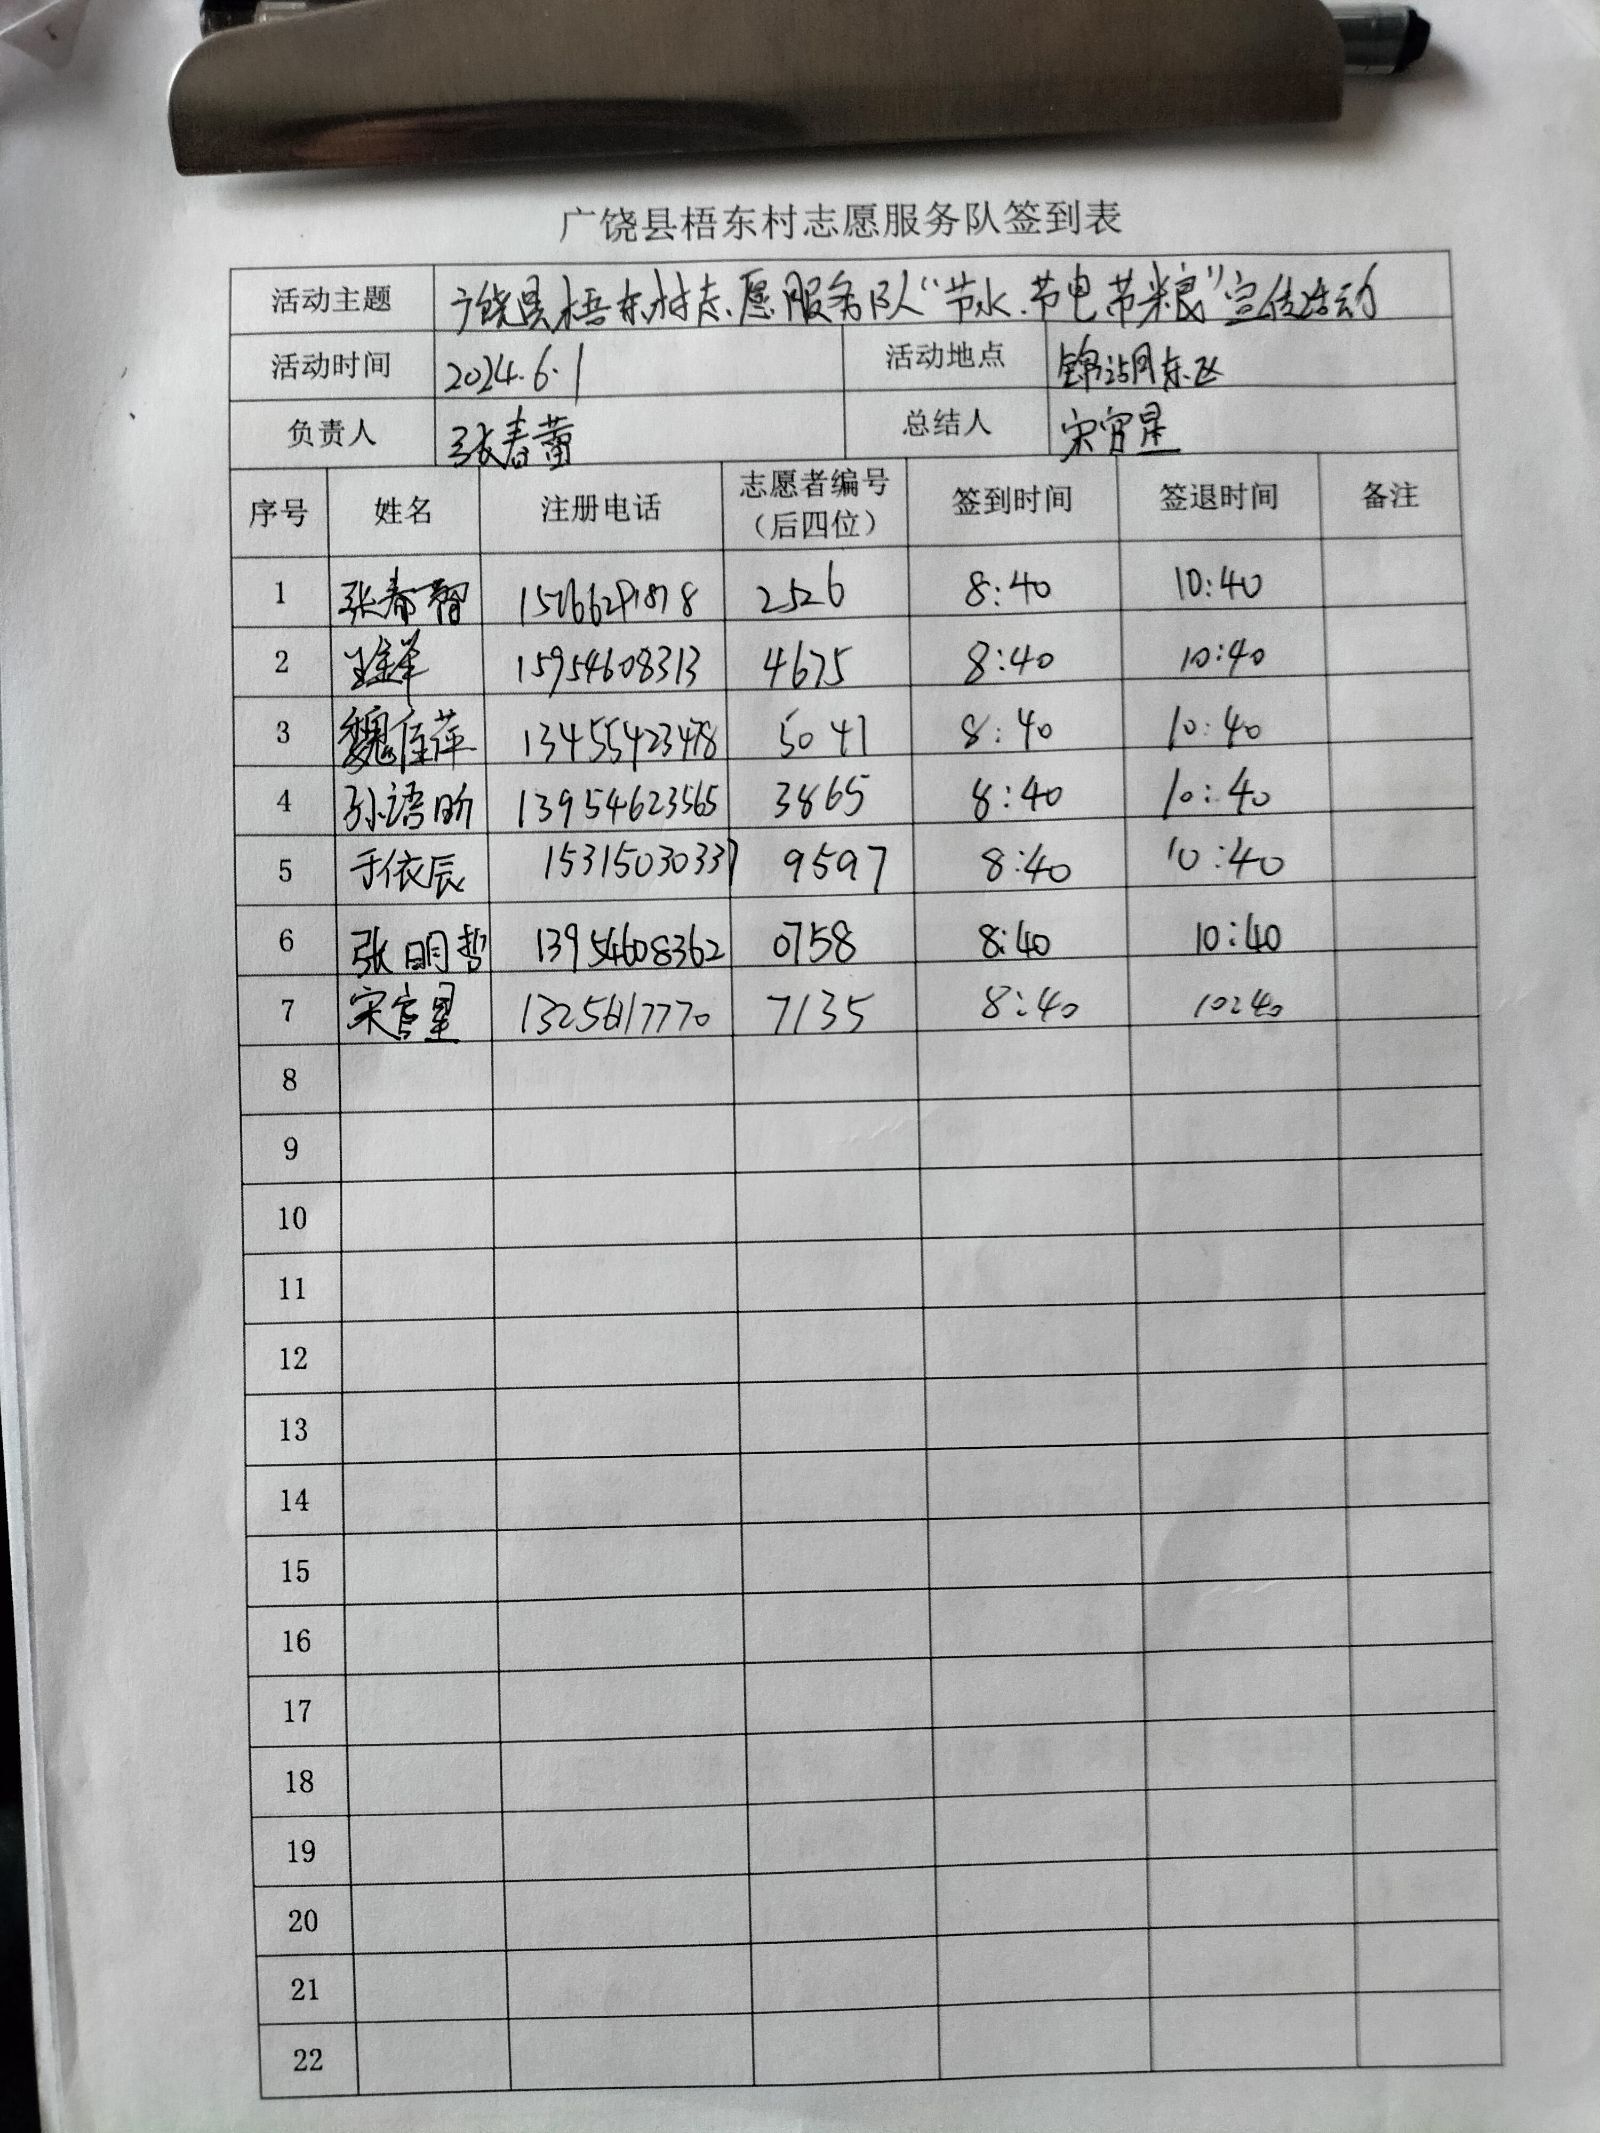 广饶县梧东村志愿服务队签到表
活动主题 广饶县梧东村志愿服务队“节水.节电节粮”宣传活动
活动时间 2024.6.1 活动地点 锦湖东区
负责人 张春蕾 总结人 宋官星
序号 姓名 注册电话 志愿者编号（后四位） 签到时间 签退时间 备注
1 2526 8:40 10:40
2 15954608313 4675 8:40 10:40
3 魏佳萍 13455423478 5041 8:40 10:40
4 孙语昕 13954623565 3865 8:40 10:40
5 于依辰 15315030337 9597 8:40 10:40
6 张明哲 13954608362 0758 8:40 10:40
7 宋官星 7135 8:40 10:40
8
9
10
11
12
13
14
15
16
17
18
19
20
21
22